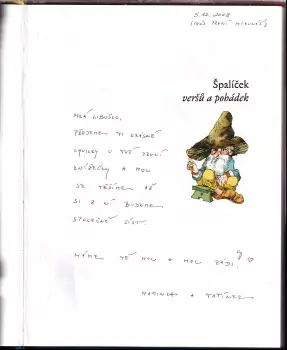 5.12.2008
(TVŮJ PRVNÍ MIKULÁŠ)
Špalíček
veršů a pohádek
MILÁ LIBUŠKO,
PŘEJEME TI KRÁSNÉ
CHVILKY U TVÉ PRVNÍ
KNÍŽEČKY A MOC
SE TĚŠÍME AŽ
SI Z NÍ BUDEME
SPOLEČNĚ ČÍST.
MÁME TĚ MOC A MOC RÁDI
MAMINKA A TATÍNEK